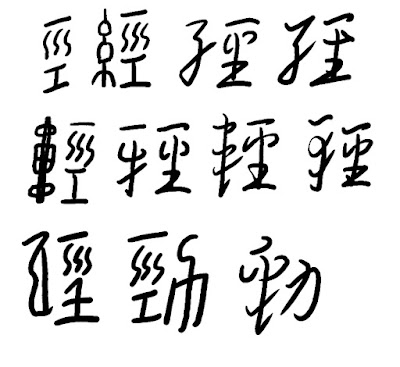 巠經經經
輕輕輕輕
勁勁